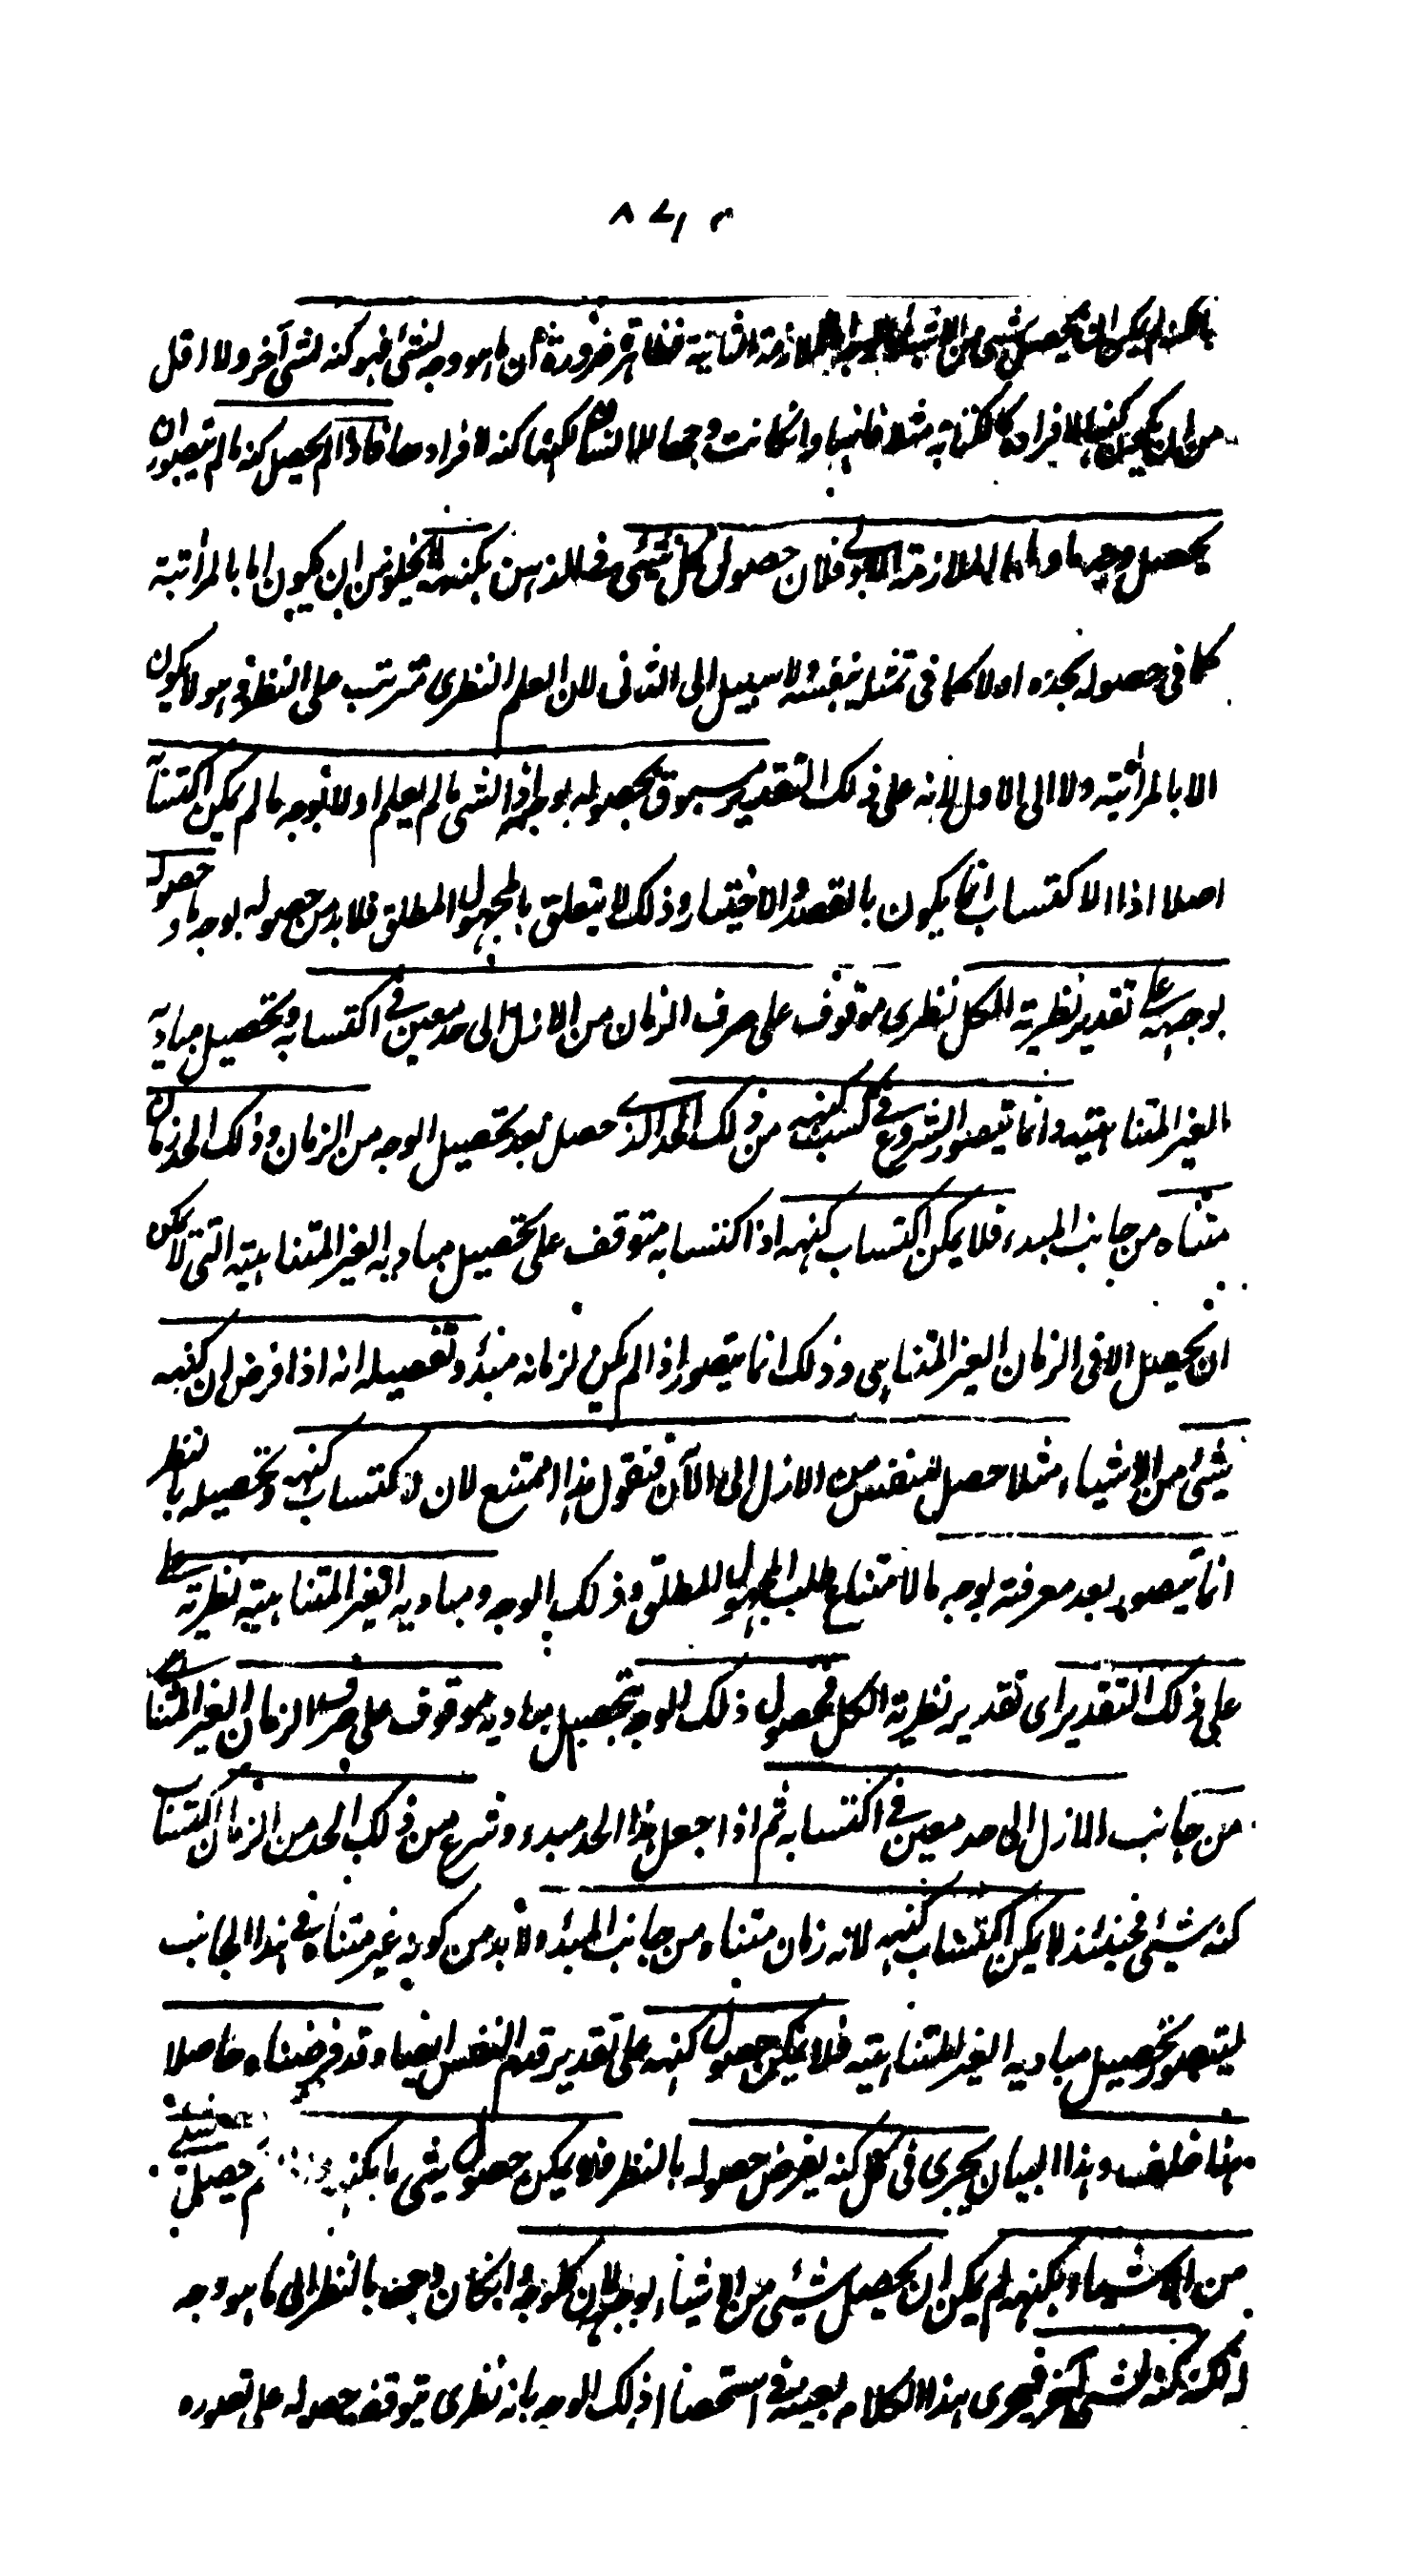 بالكنه لم يمكن ان يحصل شئ من الاشياء الملازمة الثانية فظاهرة ضرورة ان ما هو وجه لشئ فهو كنه لشئ آخر ولا اقل
من ان يكون كنها لافراده كالكتابة مثلا فانها وان كانت وجها للانسان لكنها كنه لافرادها فاذا لم يحصل كنه ما لم يتصور ان
يحصل وجه ما واما الملازمة الاولى فلان حصول كل شئ فى الذهن بكنهه لا يخلو من ان يكون اما بالمراتبة
كما فى حصوله بحده اولا كما فى تمثله بنفسه ولا سبيل الى الثانى لان العلم النظرى مترتب على النظر فهو لا يكون
الا بالمراتبة ولا الى الاول لانه على ذلك التقدير مسبوق بحصوله بوجه اذ الشئ ما لم يعلم اولا بوجه ما لم يمكن اكتسابه
اصلا اذ الاكتساب انما يكون بالقصد والاختيار وذلك لا يتعلق بالمجهول المطلق فلا بد من حصوله بوجه ما وحصوله
بوجهه على تقدير نظرية الكل نظرى موقوف على صرف الزمان من الازل الى حد معين فى اكتسابه وتحصيل مباديه
الغير المتناهية وانما يتصور الشروع فى كسب كنهه من ذلك الحد الذى حصل بعد تحصيل الوجه من الزمان وذلك الحد زمان
متناه من جانب المبدء فلا يمكن اكتساب كنهه اذ اكتسابه متوقف على تحصيل مباديه الغير المتناهية التى لا يمكن
ان يحصل الا فى الزمان الغير المتناهى وذلك انما يتصور اذا لم يكن لزمانه مبدء وتفصيله انه اذا فرض ان كنه
شئ من الاشياء مثلا حصل للنفس من الازل الى الآن فنقول هذا ممتنع لان اكتساب كنهه وتحصيله بالنظر
انما يتصور بعد معرفته بوجه ما لامتناع طلب المجهول المطلق وذلك الوجه ومباديه الغير المتناهية نظرية على
على ذلك التقدير اى تقدير نظرية الكل فحصول ذلك الوجه بتحصيل مباديه موقوف على صرف الزمان الغير المتناهى
من جانب الازل الى حد معين فى اكتسابه ثم اذا جعل هذا الحد مبدء وشرع من ذلك الحد من الزمان اكتساب
كنه شئ فحينئذ لا يمكن اكتساب كنهه لانه زمان متناه من جانب المبدء ولا بد من كونه غير متناه فى هذا الجانب
ليتصور تحصيل مباديه الغير المتناهية فلا يمكن حصول كنهه على تقدير قدم النفس ايضا وقد فرضناه حاصلا
هذا خلف وهذا البيان يجرى فى كل كنه يفرض حصوله بالنظر فلا يمكن حصول شئ ما بكنهه لم يحصل شئ
من الاشياء بكنهه لم يمكن ان يحصل شئ من الاشياء بوجه لان كل وجه وان كان وجها بالنظر الى ما هو وجه
له لكنه كنه لشئ آخر فيجرى هذا الكلام بعينه فى استحضار ذلك الوجه بانه نظرى يتوقف حصوله على تصوره